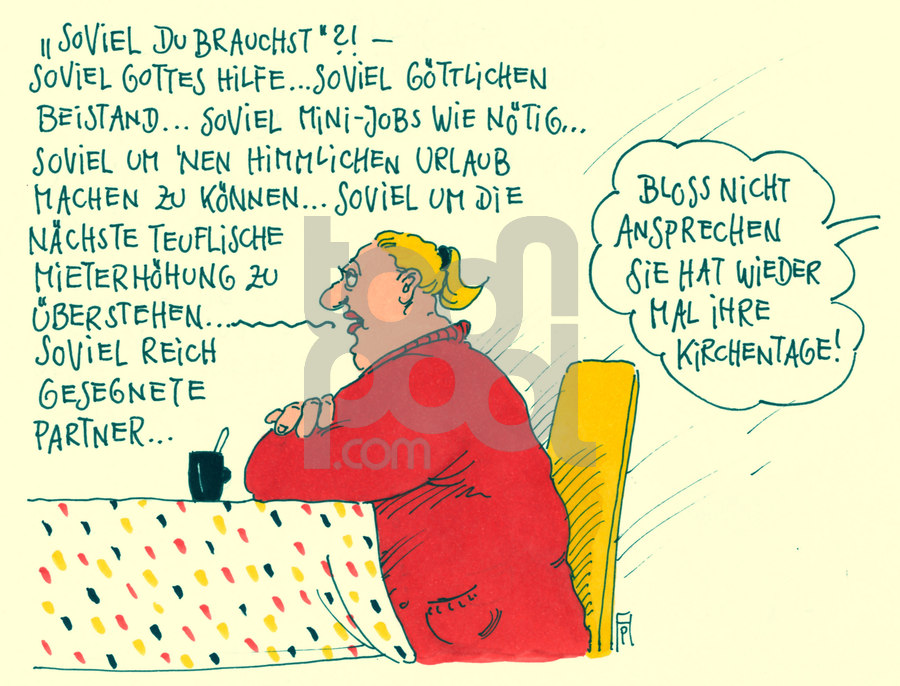 „SOVIEL DU BRAUCHST"?! –
SOVIEL GOTTES HILFE...SOVIEL GÖTTLICHEN
BEISTAND... SOVIEL MINI-JOBS WIE NÖTIG...
SOVIEL UM 'NEN HIMMLICHEN URLAUB
MACHEN ZU KÖNNEN...SOVIEL UM DIE
NÄCHSTE TEUFLISCHE
MIETERHÖHUNG ZU
ÜBERSTEHEN...
SOVIEL REICH
GESEGNETE
PARTNER...
BLOSS NICHT
ANSPRECHEN
SIE HAT WIEDER
MAL IHRE
KIRCHENTAGE!
toonpool
.com